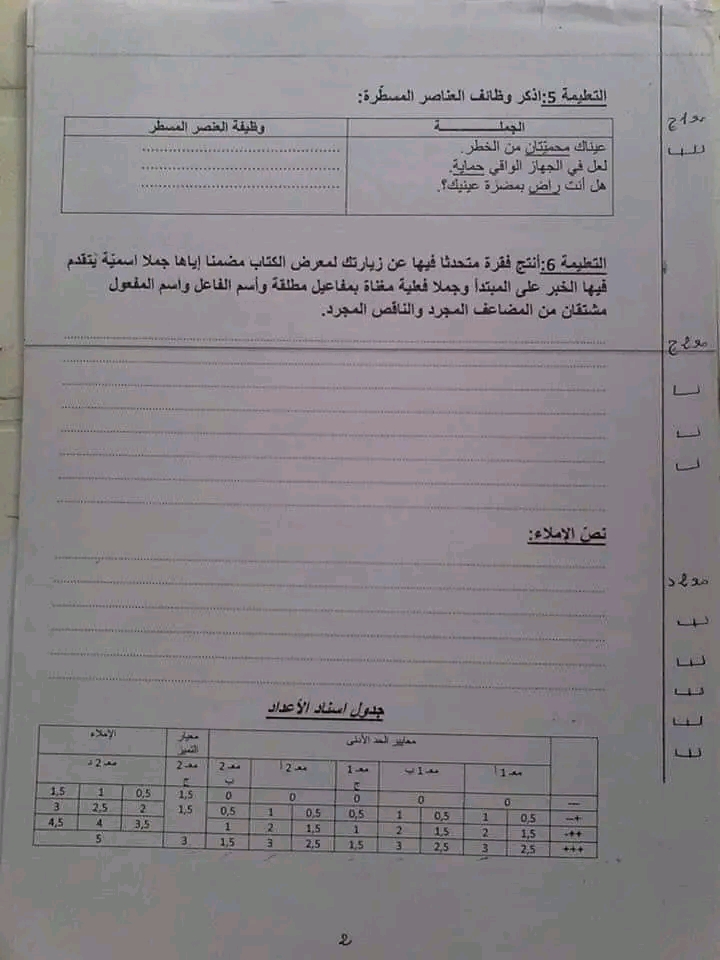 التعليمة 5:اذكر وظائف العناصر المسطّرة:
الجملـــــــــــة
وظيفة العنصر المسطر
عيناك محميّتان من الخطر.
لعل في الجهاز الواقي حماية.
هل أنت راض بمضرّة عينيك؟.
مع1ج
التعليمة 6:أنتج فقرة متحدثا فيها عن زيارتك لمعرض الكتاب مضمنا إياها جملا اسميّة يتقدم
فيها الخبر على المبتدأ وجملا فعلية مغناة بمفاعيل مطلقة وأسم الفاعل واسم المفعول
مشتقان من المضاعف المجرد والناقص المجرد.
مع2ج
نصّ الإملاء:
مع2د
جدول اسناد الأعداد
معايير الحد الأدنى
معيار التميز
الإملاء
معـ 1 أ
معـ 1 ب
معـ 1 ج
معـ 2 أ
معـ 2 ب
معـ 2 ج
معـ 2 د
--- 0 0 0 0 0 1,5 0,5 1 1,5
--+ 0,5 1 0,5 1 0,5 0,5 1 0,5 1,5 2 2,5 3
-++ 1,5 2 1,5 2 1 1,5 2 1 3,5 4 4,5
+++ 2,5 3 2,5 3 1,5 2,5 3 1,5 3 5
2